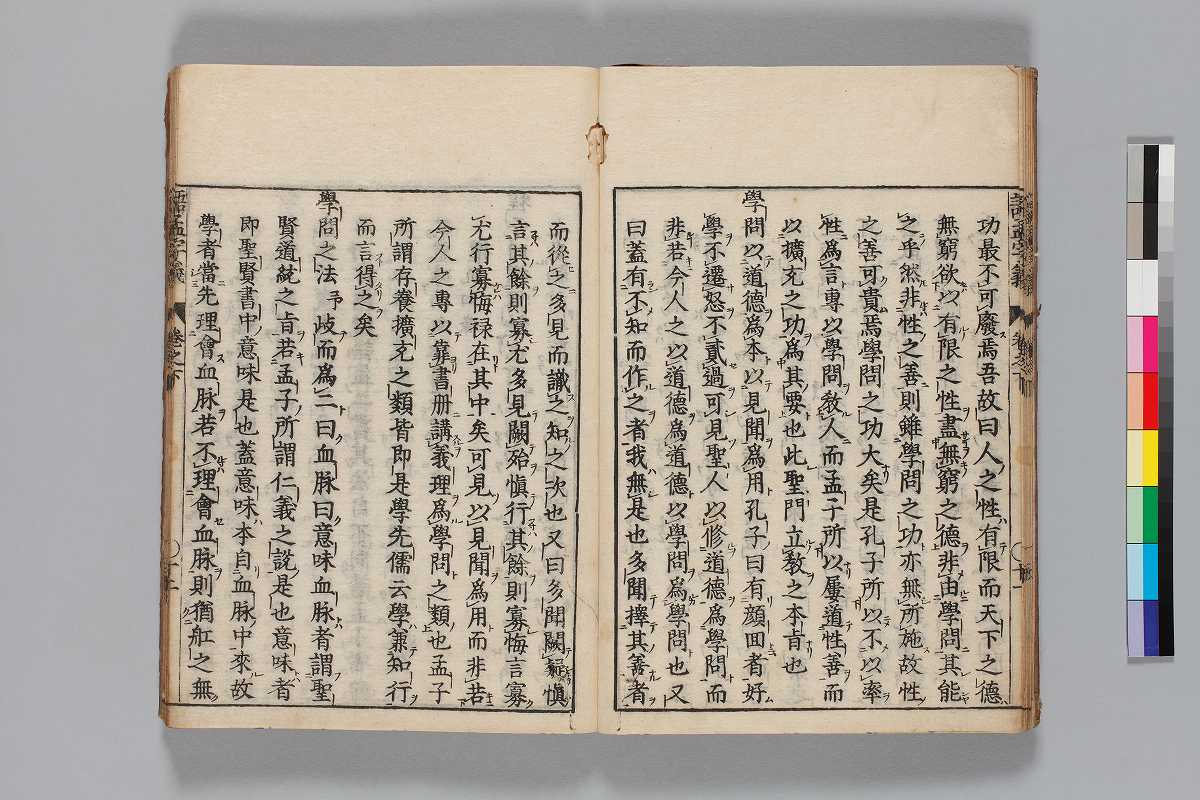 功最不可廢焉吾故曰人之性有限而天下之德
無窮欲以有限之性盡無窮之德非由學問其能
之乎然非性之善則雖學問之功亦無所施故性
之善可貴焉學問之功大矣是孔子所以不以率
性爲言專以學問敎人而孟子所以屢道性善而
以擴充之功爲其要也此聖門立敎之本旨也
學問以道德爲本以見聞爲用孔子曰有顔囬者好
學不遷怒不貳過可見聖人以修道德爲學問而
非若今人之以道德爲道德以學問爲學問也又
曰蓋有不知而作之者我無是也多聞擇其善者
而從之多見而識之知之次也又曰多聞闕疑愼
言其餘則寡尤多見闕殆愼行其餘則寡悔言寡
尤行寡悔祿在其中矣可見以見聞爲用而非若
今人之專以靠書册講義理爲學問之類也孟子
所謂存養擴充之類皆即是學先儒云學兼知行
而言得之矣
學問之法予歧而爲二曰血脉曰意味血脉者謂聖
賢道統之旨若孟子所謂仁義之說是也意味者
即聖賢書中意味是也蓋意味本自血脉中來故
學者當先理會血脉若不理會血脉則猶舡之無
語孟字義
卷之下
十二